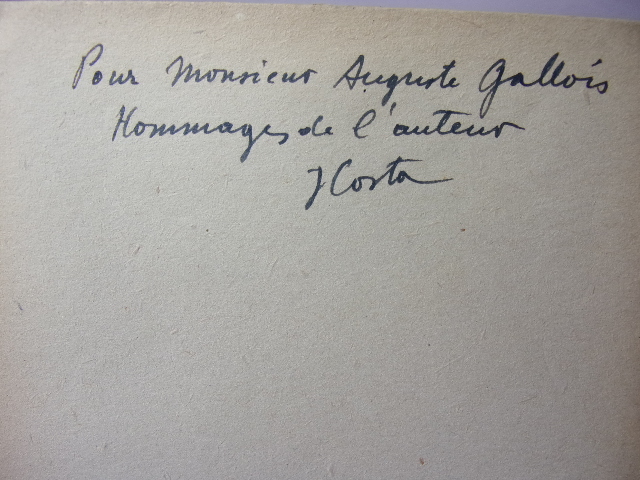 Pour Monsieur Auguste Gallois
Hommages de l'auteur
J Costa